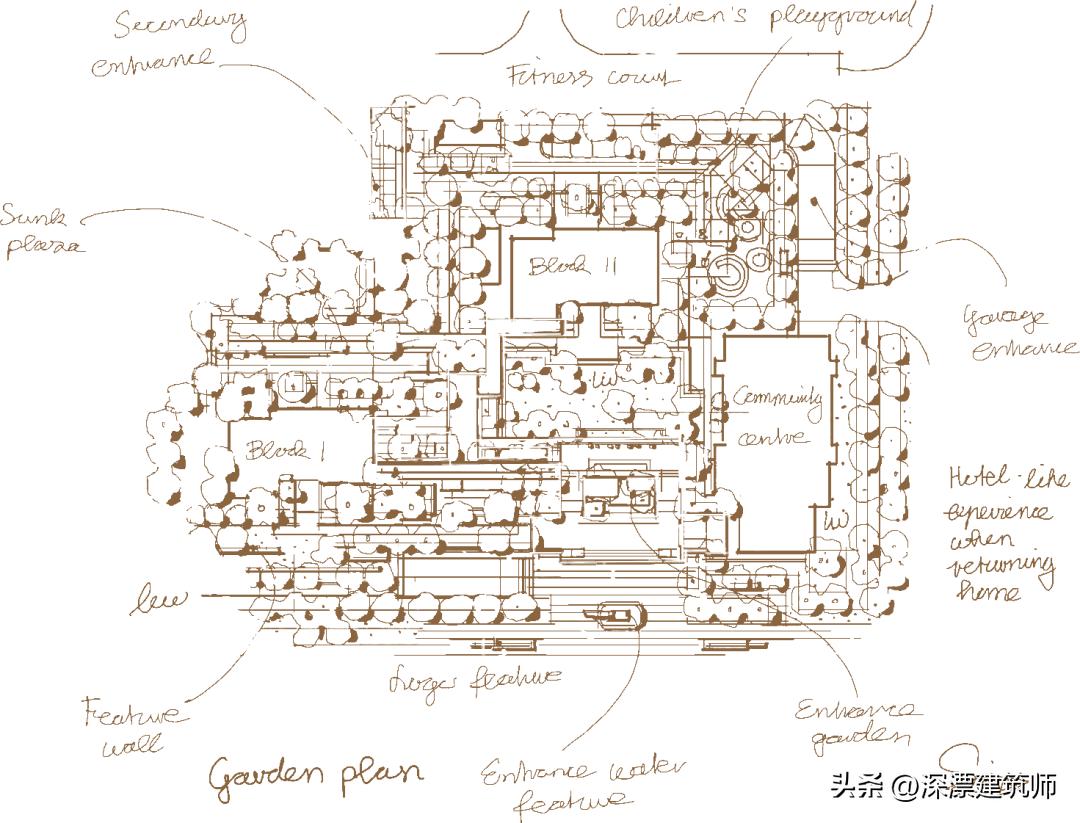 Secondary
entrance
Children's playground
Fitness court
Sunk
plaza
Block II
Garage
entrance
Community
centre
Block I
Hotel-like
experience
when
returning
home
Feature
wall
feature
Entrance
garden
Garden plan
Entrance water
feature
头条 @深漂建筑师